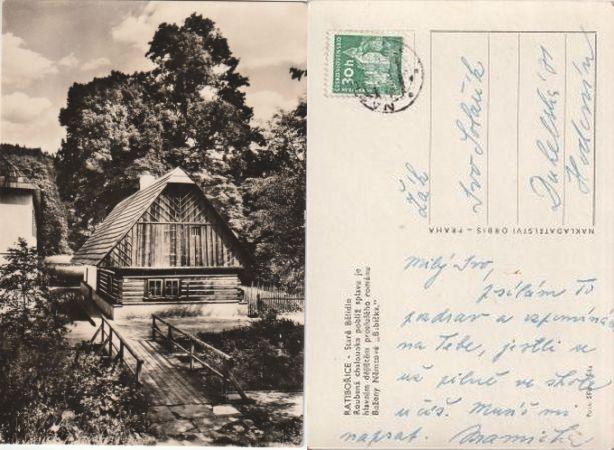 ČESKOSLOVENSKO
30h
Žák
Ivo
NAKLADATELSTVÍ ORBIS - PRAHA
RATIBOŘICE - Staré Bělidlo
Roubená chaloupka poblíž splavu je
hlavním dějištěm proslulého románu
Boženy Němcové „Babička."
Milý Ivo,
posílám Ti
pozdrav a vzpomínám
na Tebe, jestli se
už pilně ve škole
učíš. Musíš mi
napsat. Maminka